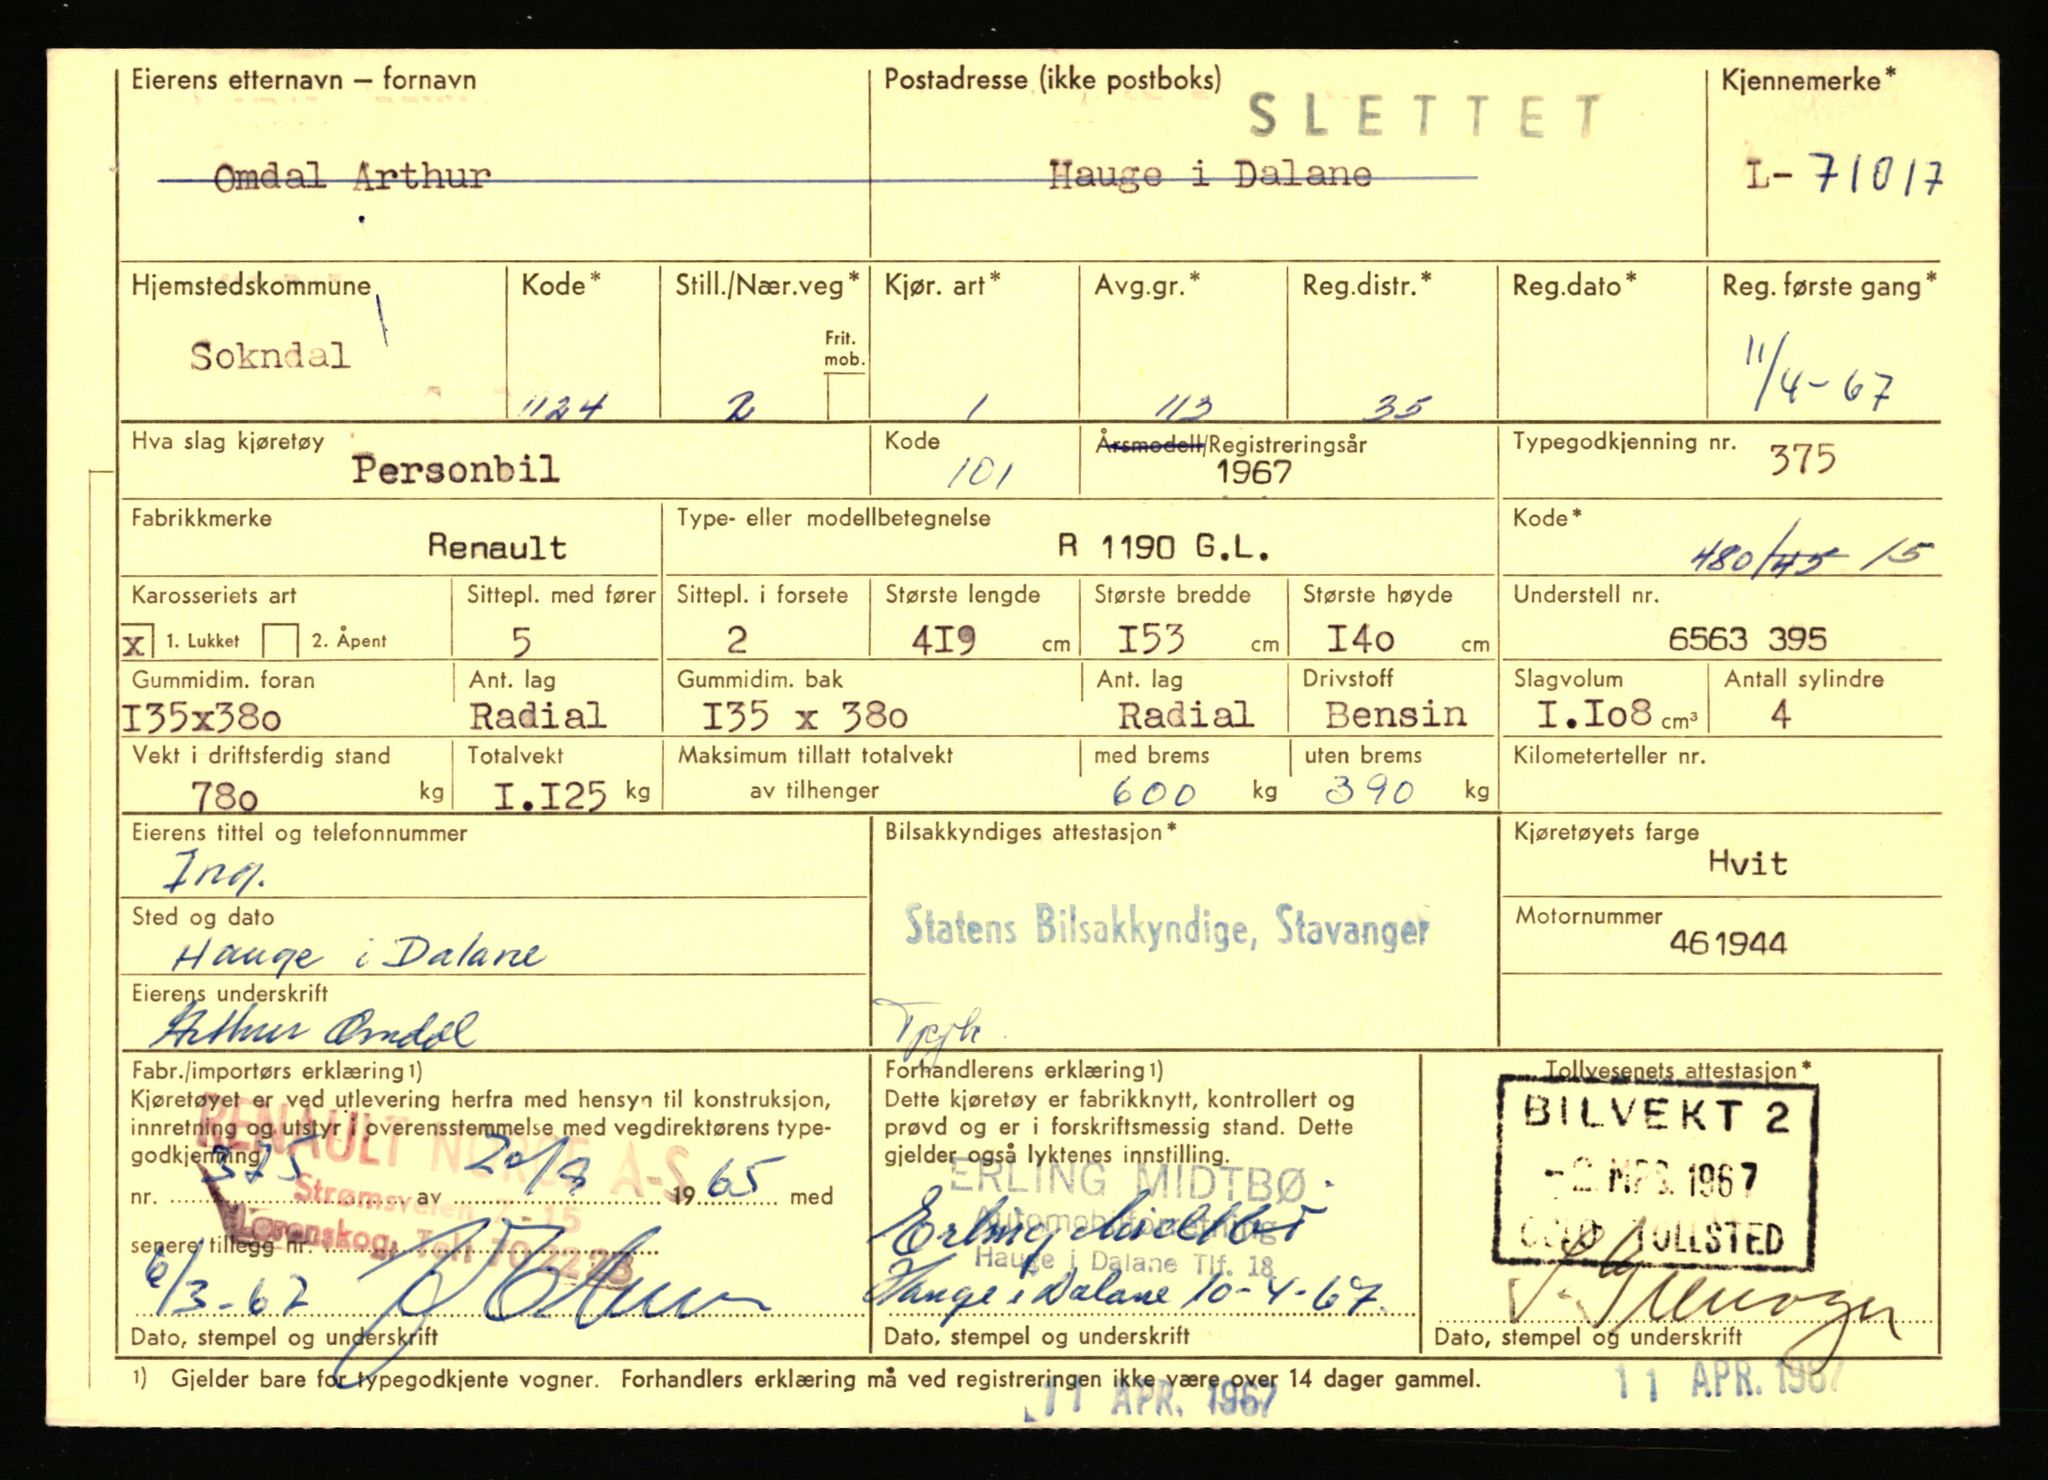 Eierens etternavn – fornavn
Postadresse (ikke postboks)
Kjennemerke*
SLETTET
Omdal Arthur
Hauge i Dalane
L- 71017
Hjemstedskommune
Kode*
Still./Nær.veg*
Kjør. art*
Avg.gr.*
Reg.distr.*
Reg.dato*
Reg. første gang*
Sokndal
1124
2
Frit. mob.
1
113
35
11/4-67
Hva slag kjøretøy
Personbil
Kode
101
Årsmodell/Registreringsår
1967
Typegodkjenning nr. 375
Fabrikkmerke
Renault
Type- eller modellbetegnelse
R 1190 G.L.
Kode*
480/45 15
Karosseriets art
x 1. Lukket 2. Åpent
Sittepl. med fører
5
Sittepl. i forsete
2
Største lengde
4I9 cm
Største bredde
I53 cm
Største høyde
I4o cm
Understell nr.
6563 395
Gummidim. foran
I35x38o
Ant. lag
Radial
Gummidim. bak
I35 x 38o
Ant. lag
Radial
Drivstoff
Bensin
Slagvolum
I.Io8 cm³
Antall sylindre
4
Vekt i driftsferdig stand
78o kg
Totalvekt
I.I25 kg
Maksimum tillatt totalvekt
av tilhenger
med brems
600 kg
uten brems
390 kg
Kilometerteller nr.
Eierens tittel og telefonnummer
Ing.
Bilsakkyndiges attestasjon*
Statens Bilsakkyndige, Stavanger
Kjøretøyets farge
Hvit
Sted og dato
Hauge i Dalane
Motornummer
461944
Eierens underskrift
Arthur Omdal
Fabr./importørs erklæring 1)
Kjøretøyet er ved utlevering herfra med hensyn til konstruksjon,
innretning og utstyr i overensstemmelse med vegdirektørens type-
godkjenning
nr. 375 av 20/8 19 65 med
senere tillegg nr.
RENAULT NORGE A-S
Strømsveien 7-15
Lørenskog, Telf 70 22 28
6/3-67
Dato, stempel og underskrift
Forhandlerens erklæring 1)
Dette kjøretøy er fabrikknytt, kontrollert og
prøvd og er i forskriftsmessig stand. Dette
gjelder også lyktenes innstilling.
ERLING MIDTBØ
Automobilforretning
Hauge i Dalane Tlf. 18
Erling Midtbø
Hauge i Dalane 10-4-67.
Dato, stempel og underskrift
Tollvesenets attestasjon*
BILVEKT 2
-2 MRS. 1967
OSLO TOLLSTED
Dato, stempel og underskrift
1) Gjelder bare for typegodkjente vogner. Forhandlers erklæring må ved registreringen ikke være over 14 dager gammel.
11 APR. 1967
11 APR. 1967